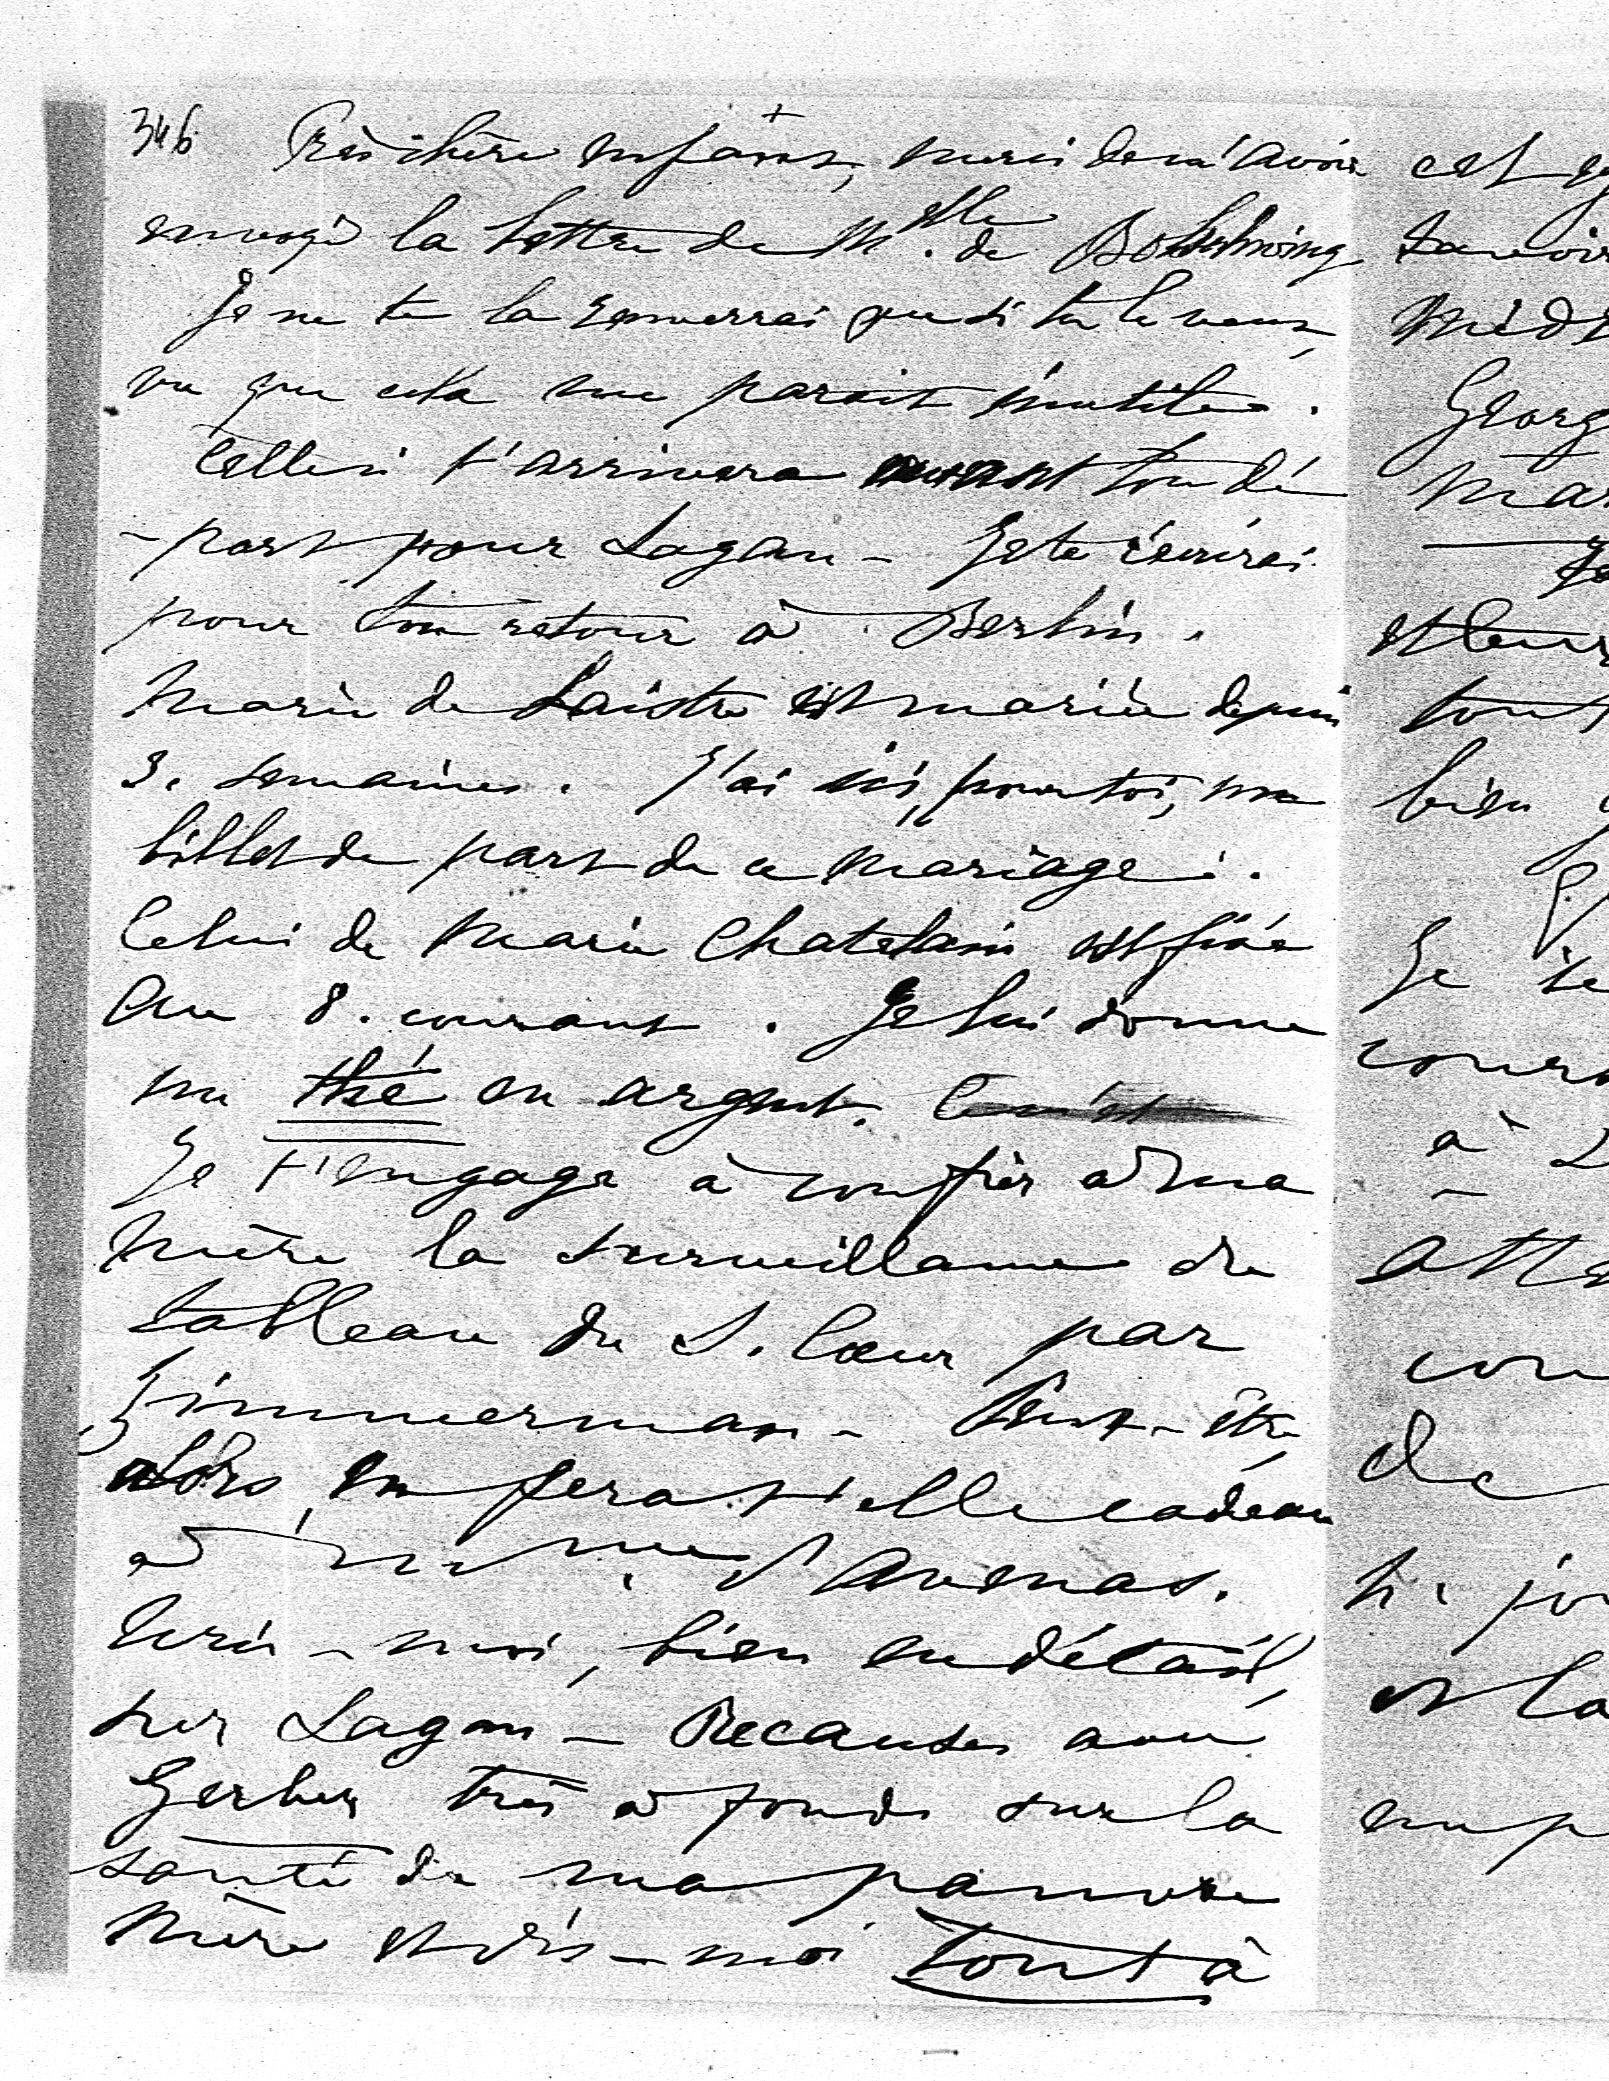 346
+
Très chère enfant, merci de m'avoir
envoyé la lettre de Melle. de
Je ne te la renverrai que si tu le veux,
vu que cela me parait inutile.
Celle ci t'arrivera avant ton dé
-part pour Sagan - Je te écrirai
pour ton retour à Berlin.
Marie de Laistre est mariée depuis
3. semaines. J'ai ici, pour toi, un
billet de part de ce mariage.
Celui de Marie Chatelain est fixée
au 8. courant. Je lui donne
un thé en argent.
Je t'engage à confier à ma
mère la surveillance du
tableau du S. Coeur par
Zimmerman - Peut-être,
alors, en fera t'elle cadeau
à Me. d'Avenas.
Ecris-moi, bien en détail,
sur Sagan - Recauses avec
Gerber très à fonds sur la
santé de ma pauvre
mère et dis-moi tout à
cet
savoir
Méde
Georg
Mar
et leur
tout
bien
Je te
coura
à
atte
cou
de
h. jo
et la
emp